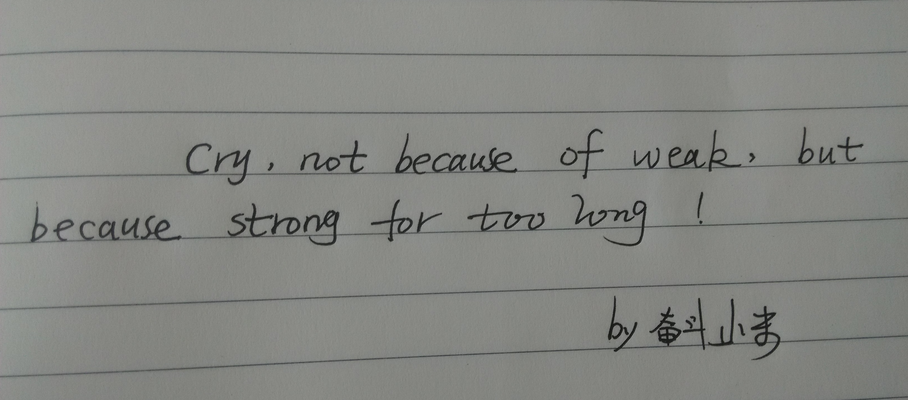 Cry, not because of weak, but
because strong for too long!
by 奋斗小